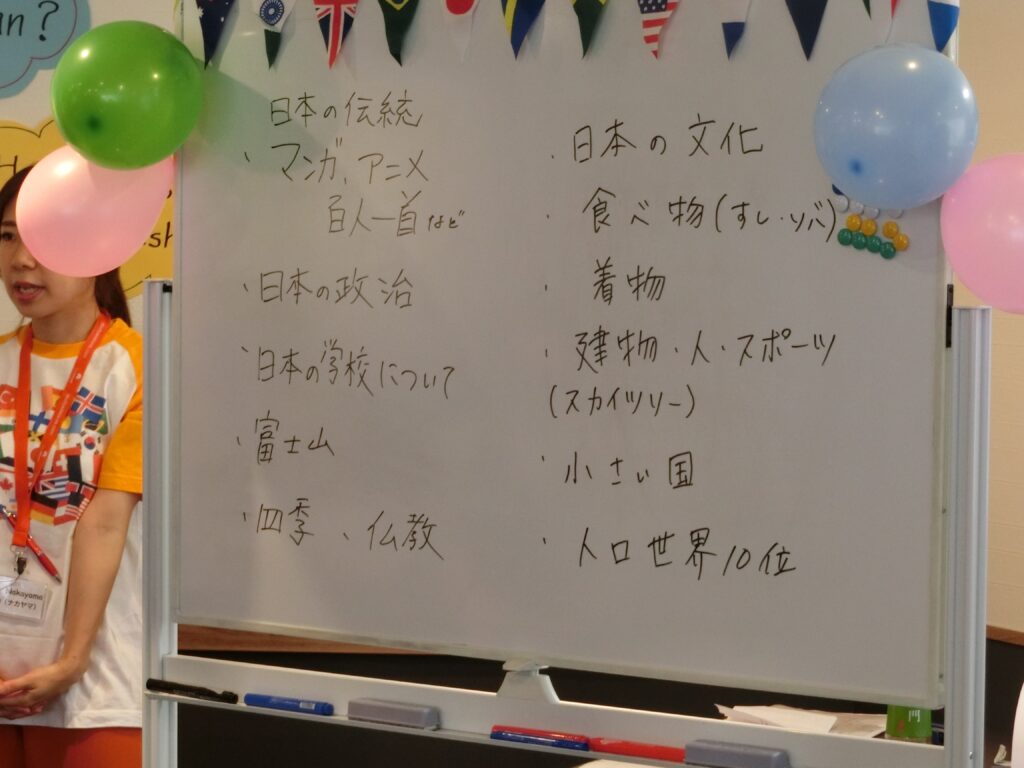 an?
日本の伝統
・マンガ、アニメ
百人一首など
・日本の政治
・日本の学校について
・富士山
・四季、仏教
・日本の文化
・食べ物(すし・ソバ)
・着物
・建物・人・スポーツ
(スカイツリー)
・小さい国
・人口世界10位
Nakayama
(ナカヤマ)